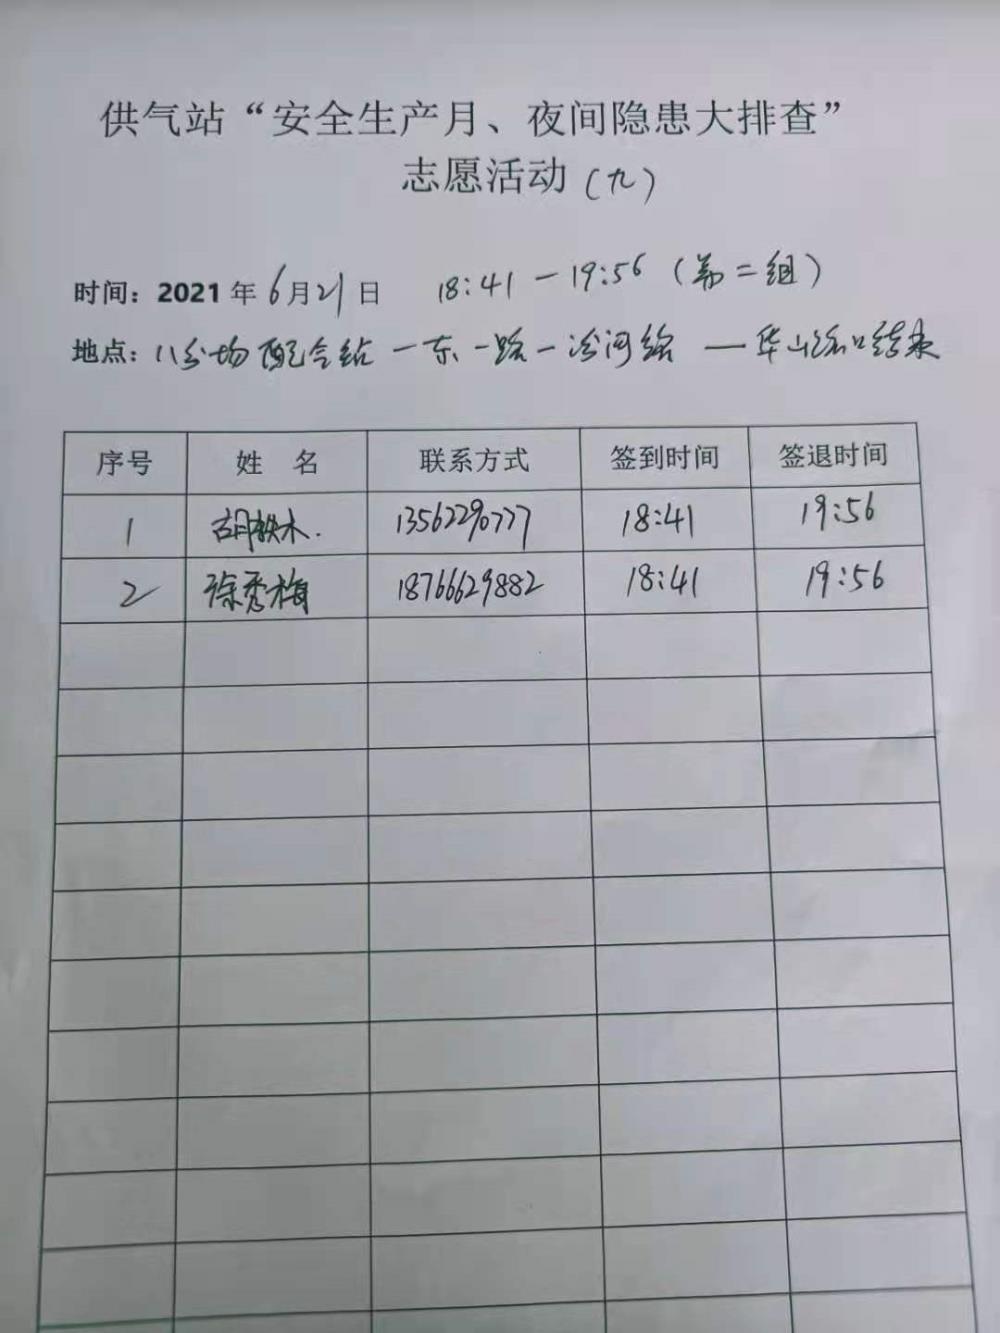 供气站“安全生产月、夜间隐患大排查”
志愿活动(九)
时间：2021年6月21日 18:41—19:56（第二组）
地点：八分场配气站—东一路—汾河路—华山路口结束
序号 姓 名 联系方式 签到时间 签退时间
1 胡轶木. 13562290777 18:41 19:56
2 徐秀梅 18766629882 18:41 19:56